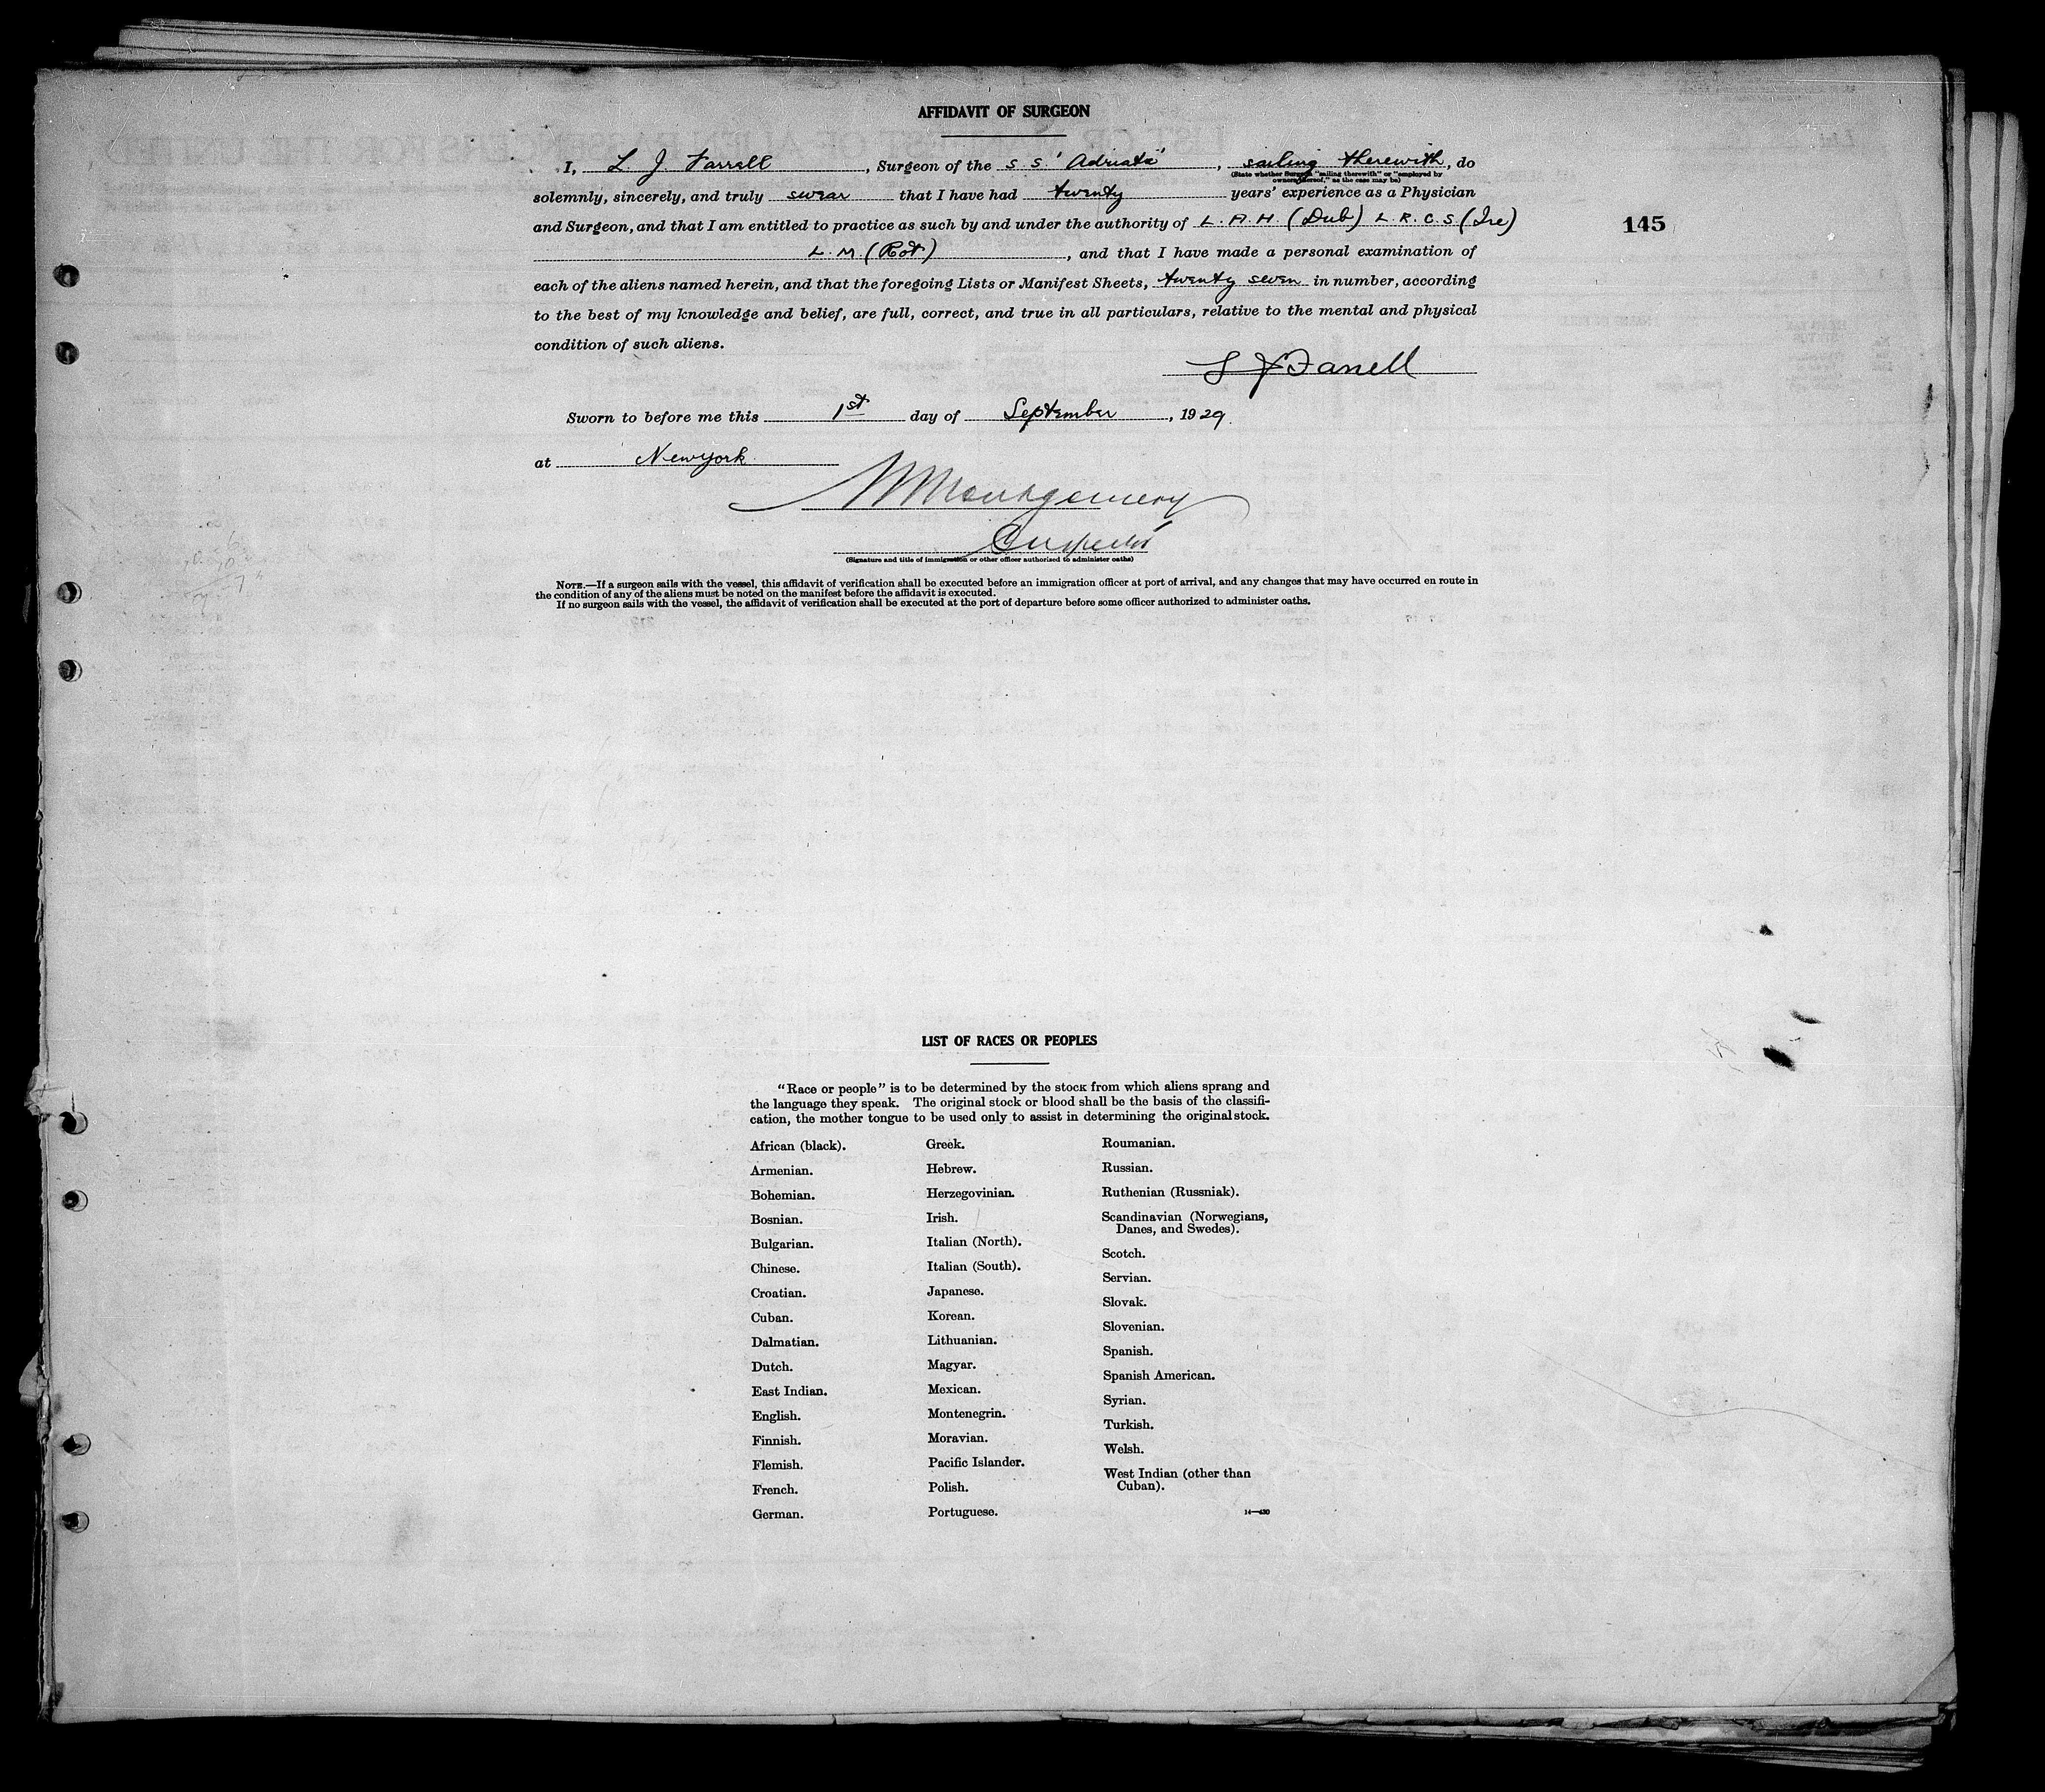 AFFIDAVIT OF SURGEON
I, L J Farrell, Surgeon of the S. S. 'Adriatic', sailing therewith, do
(State whether Surgeon "sailing therewith" or "employed by
owners thereof," as the case may be)
solemnly, sincerely, and truly swear that I have had twenty years' experience as a Physician
and Surgeon, and that I am entitled to practice as such by and under the authority of L. A. H. (Dub) L. R. C. S. (Ire)
145
L. M. (Rot), and that I have made a personal examination of
each of the aliens named herein, and that the foregoing Lists or Manifest Sheets, twenty seven in number, according
to the best of my knowledge and belief, are full, correct, and true in all particulars, relative to the mental and physical
condition of such aliens.
L J Farrell
Sworn to before me this 1st day of September, 1929.
at New York.
Montgomery
Inspector
(Signature and title of immigration or other officer authorized to administer oaths)
NOTE.—If a surgeon sails with the vessel, this affidavit of verification shall be executed before an immigration officer at port of arrival, and any changes that may have occurred en route in
the condition of any of the aliens must be noted on the manifest before the affidavit is executed.
If no surgeon sails with the vessel, the affidavit of verification shall be executed at the port of departure before some officer authorized to administer oaths.
LIST OF RACES OR PEOPLES
"Race or people" is to be determined by the stock from which aliens sprang and
the language they speak. The original stock or blood shall be the basis of the classifi-
cation, the mother tongue to be used only to assist in determining the original stock.
African (black).
Armenian.
Bohemian.
Bosnian.
Bulgarian.
Chinese.
Croatian.
Cuban.
Dalmatian.
Dutch.
East Indian.
English.
Finnish.
Flemish.
French.
German.
Greek.
Hebrew.
Herzegovinian.
Irish.
Italian (North).
Italian (South).
Japanese.
Korean.
Lithuanian.
Magyar.
Mexican.
Montenegrin.
Moravian.
Pacific Islander.
Polish.
Portuguese.
Roumanian.
Russian.
Ruthenian (Russniak).
Scandinavian (Norwegians,
Danes, and Swedes).
Scotch.
Servian.
Slovak.
Slovenian.
Spanish.
Spanish American.
Syrian.
Turkish.
Welsh.
West Indian (other than
Cuban).